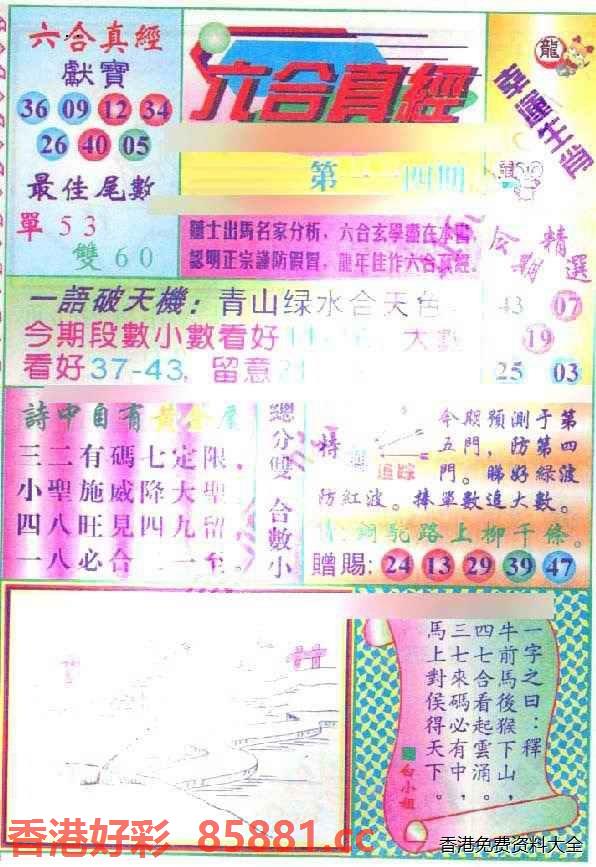 六合真經
獻寶
36 09 12 34
26 40 05
最佳尾數
單 5 3
雙 6 0
六合真經
龍
幸運生肖
鼠
隱士出馬名家分析,六合玄學盡在本書
認明正宗謹防假冒,龍年佳作六合真經.
精選
43 07
19
25 03
一語破天機:青山绿水合天色
今期段數小數看好
大數
看好37-43, 留意
詩中自有黃金屋
三二有碼七定限。
小聖施威降大聖
四八旺見四九留
一八必合二一至。
總分雙 合數小
追踪
今期預測于第
五門,防第四
門。睇好綠波
防紅波。捧單數追大數。
銅駝路上柳千條。
贈賜: 24 13 29 39 47
一字之曰:釋
牛前馬後猴下山,
四七合看起雲涌。
三七來碼必有中,
馬上對侯得天下。
白小姐
香港好彩 85881.cc
香港免费资料大全